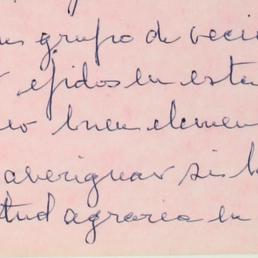 grupo de veci
ejidos en este
buen elemen
averiguar si
tud agraria en